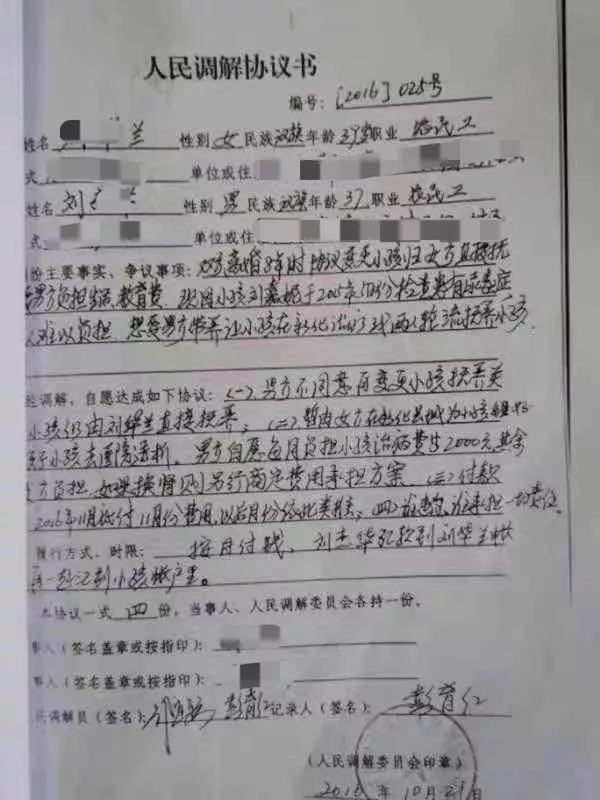 人民调解协议书
编号：[2016]025号
姓名 兰 性别 女 民族 汉族 年龄 39岁 职业 农民工
式 单位或住
姓名 刘 性别 男 民族 汉族 年龄 37 职业 农民工
式 单位或住
份主要事实、争议事项：双方离婚8年时协议变更小孩归女方直接抚
男方负担 教育费 现因小孩刘 于2005年10月份检查患有尿毒症
人难以负担，想要男方带养让小孩在新化治疗或两人轮流抚养小孩
经调解，自愿达成如下协议：(一)男方不同意再变更小孩抚养关
小孩仍由刘华兰直接抚养；(二)暂由女方在新化县城为小孩
小孩去医院透析，男方自愿每月负担小孩治病费占2000元其余
方负担，如果换肾则另行商定费用承担方案 (三)付款
2016年11月底付11月份费用，以后月份依此类推；(四)谁违约，谁承担一切责任。
履行方式、时限： 按月付钱，刘 华 款到刘华兰帐
汇到小孩帐户里。
本协议一式 四 份，当事人、人民调解委员会各持一份。
事人（签名盖章或按指印）：
事人（签名盖章或按指印）：
民调解员（签名）： 彭育红 记录人（签名）： 彭育红
（人民调解委员会印章）
2016 年 10月 日